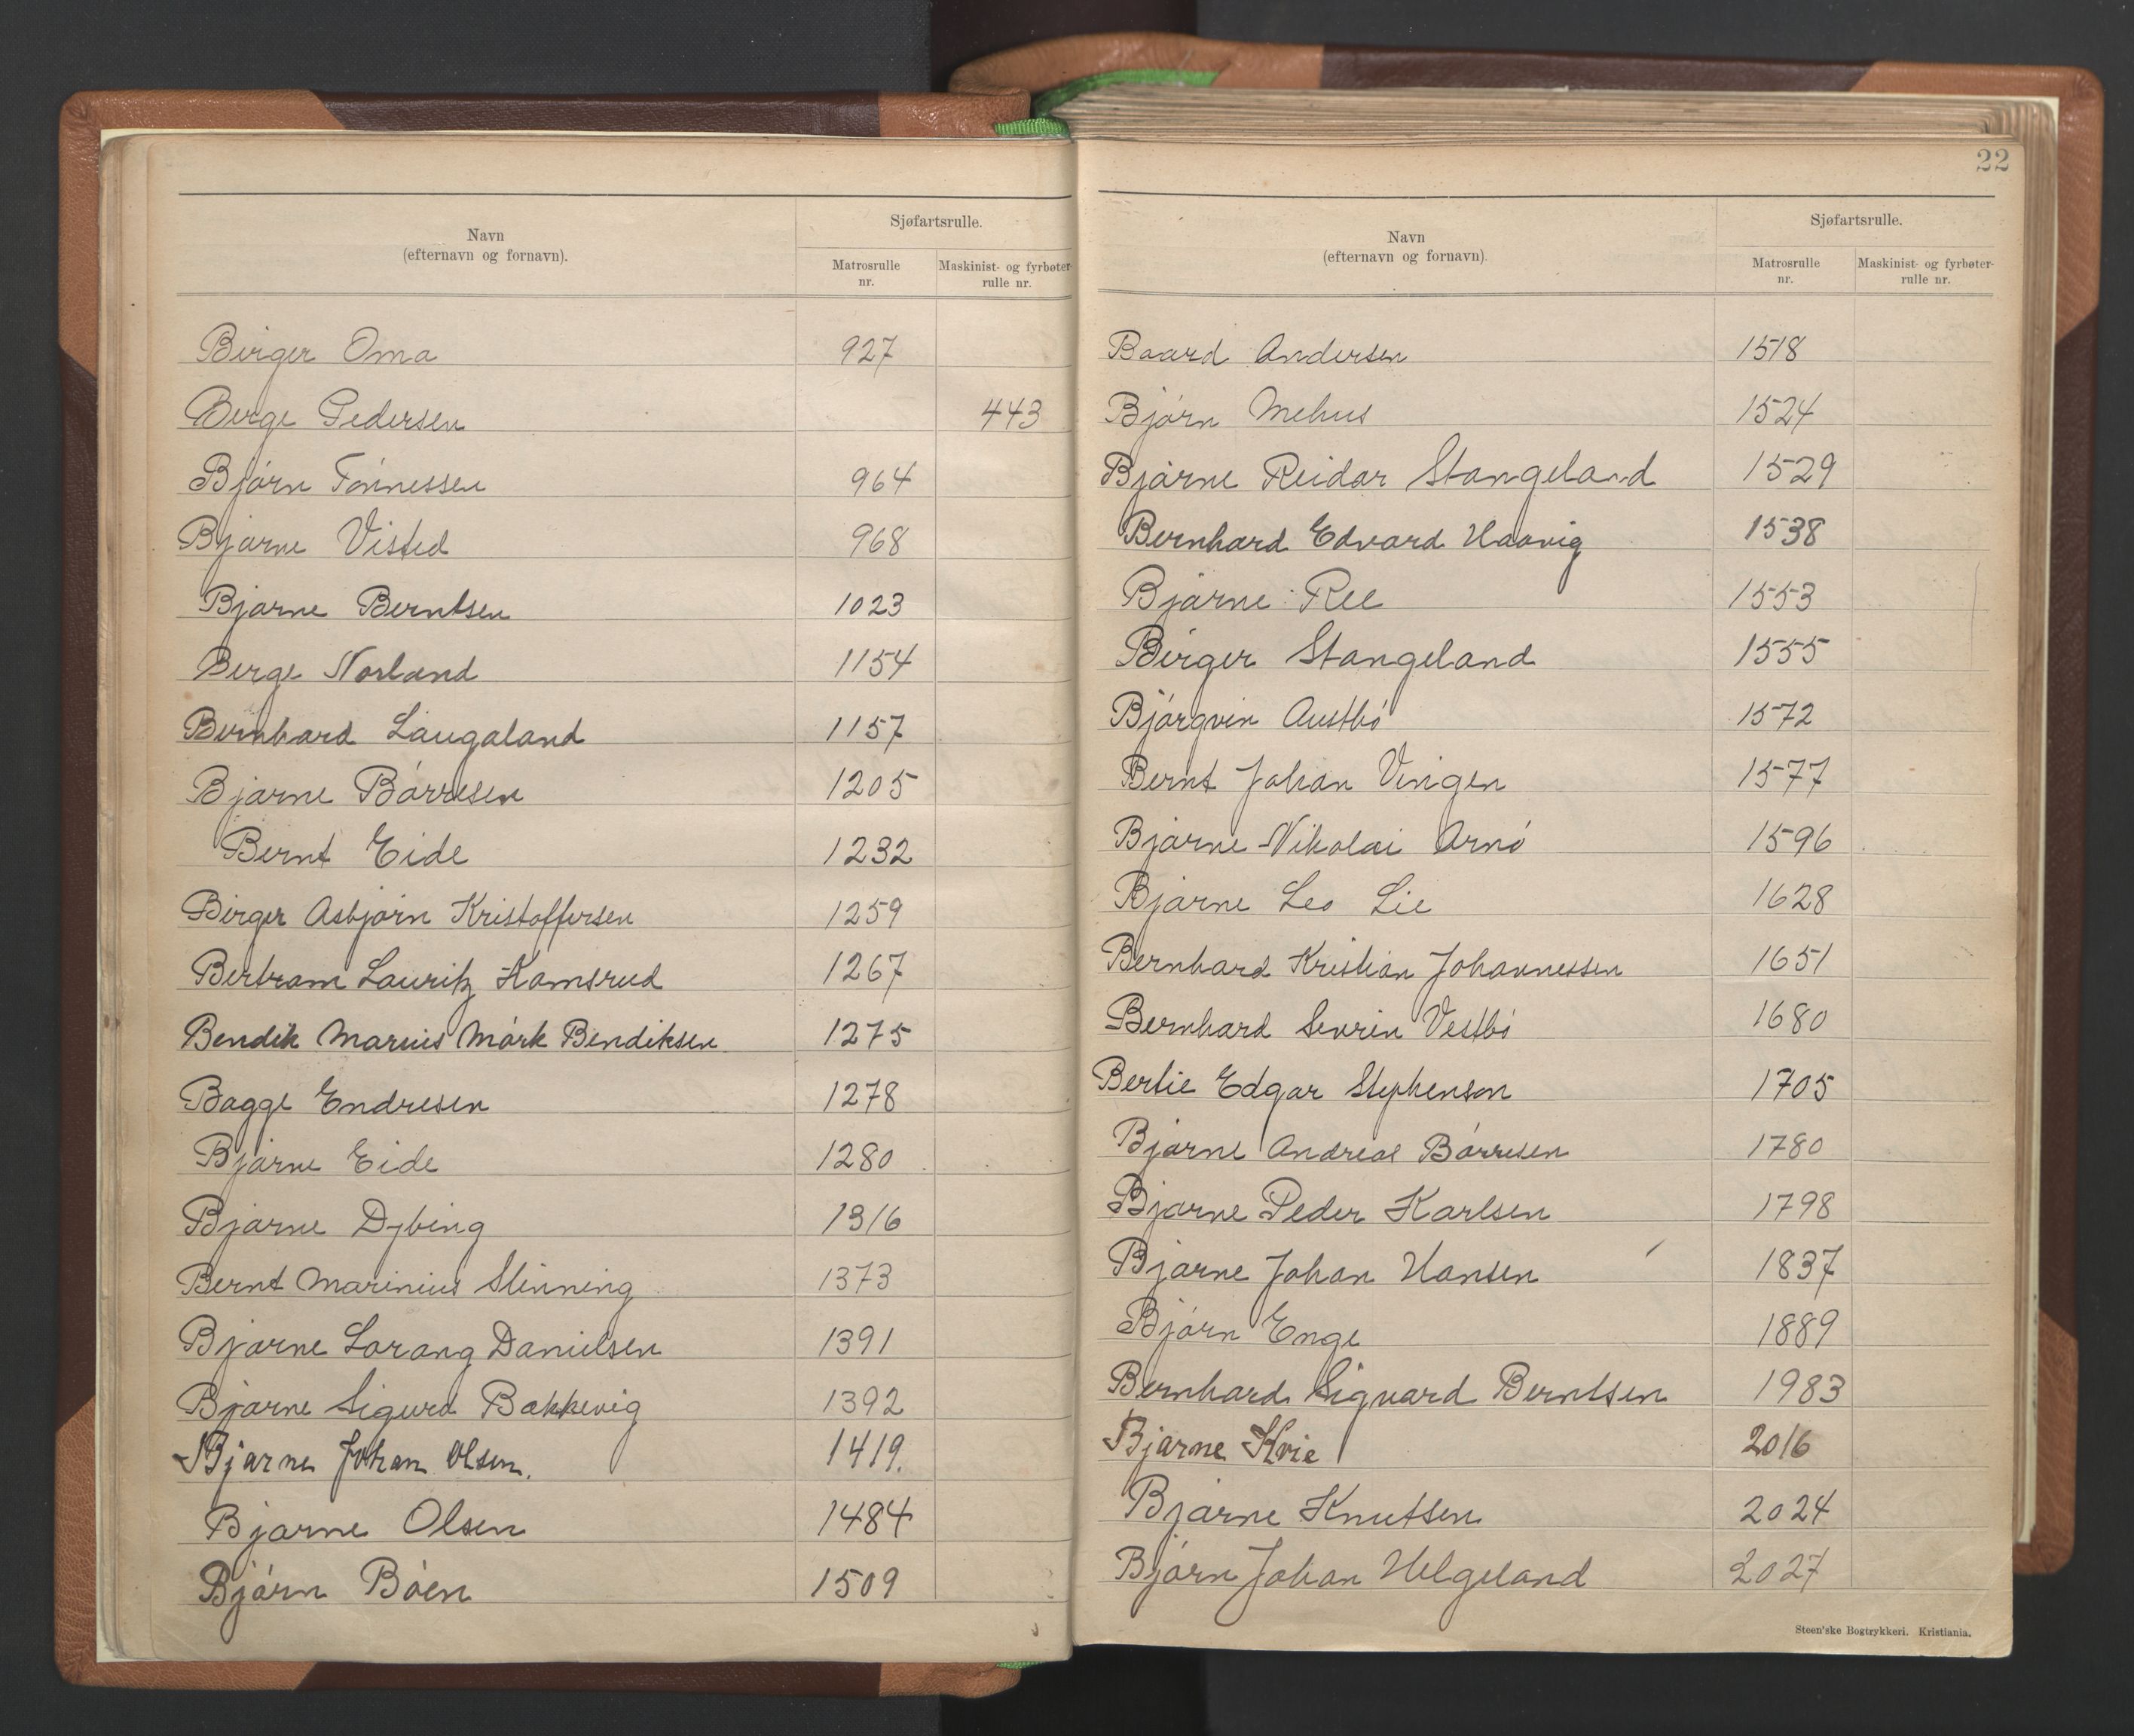 Navn
(efternavn og fornavn).
Sjøfartsrulle.
Matrosrulle nr.
Maskinist- og fyrbøter-rulle nr.
Birger Oma 927
Berge Pedersen 443
Bjørn Tønnessen 964
Bjarne Visted 968
Bjarne Berntsen 1023
Berge Norland 1154
Bernhard Laugaland 1157
Bjarne Børresen 1205
Bernt Eide 1232
Birger Asbjørn Kristoffersen 1259
Bertram Lauritz Kamsrud 1267
Bendik Marius Mørk Bendiksen 1275
Bagge Endresen 1278
Bjarne Eide 1280
Bjarne Dybing 1316
Bernt Marinius Slinning 1373
Bjarne Lorang Danielsen 1391
Bjarne Sigurd Bækkevig 1392
Bjarne Johan Olsen. 1419.
Bjarne Olsen 1484
Bjørn Bøen 1509
22
Navn
(efternavn og fornavn).
Sjøfartsrulle.
Matrosrulle nr.
Maskinist- og fyrbøter-rulle nr.
Baard Andersen 1518
Bjørn Mehus 1524
Bjarne Reidar Stangeland 1529
Bernhard Edvard Haavig 1538
Bjarne Ree 1553
Birger Stangeland 1555
Bjørgvin Austbø 1572
Bernt Johan Vingen 1577
Bjarne Nikolai Arnø 1596
Bjarne Leo Lie 1628
Bernhard Kristian Johannessen 1651
Bernhard Sevrin Vestbø 1680
Bertie Edgar Stephenson 1705
Bjarne Andreas Børresen 1780
Bjarne Peder Karlsen 1798
Bjarne Johan Hansen 1837
Bjørn Enge 1889
Bernhard Sigvard Berntsen 1983
Bjarne Kvie 2016
Bjarne Knutsen 2024
Bjørn Johan Helgeland 2027
Steen'ske Bogtrykkeri. Kristiania.